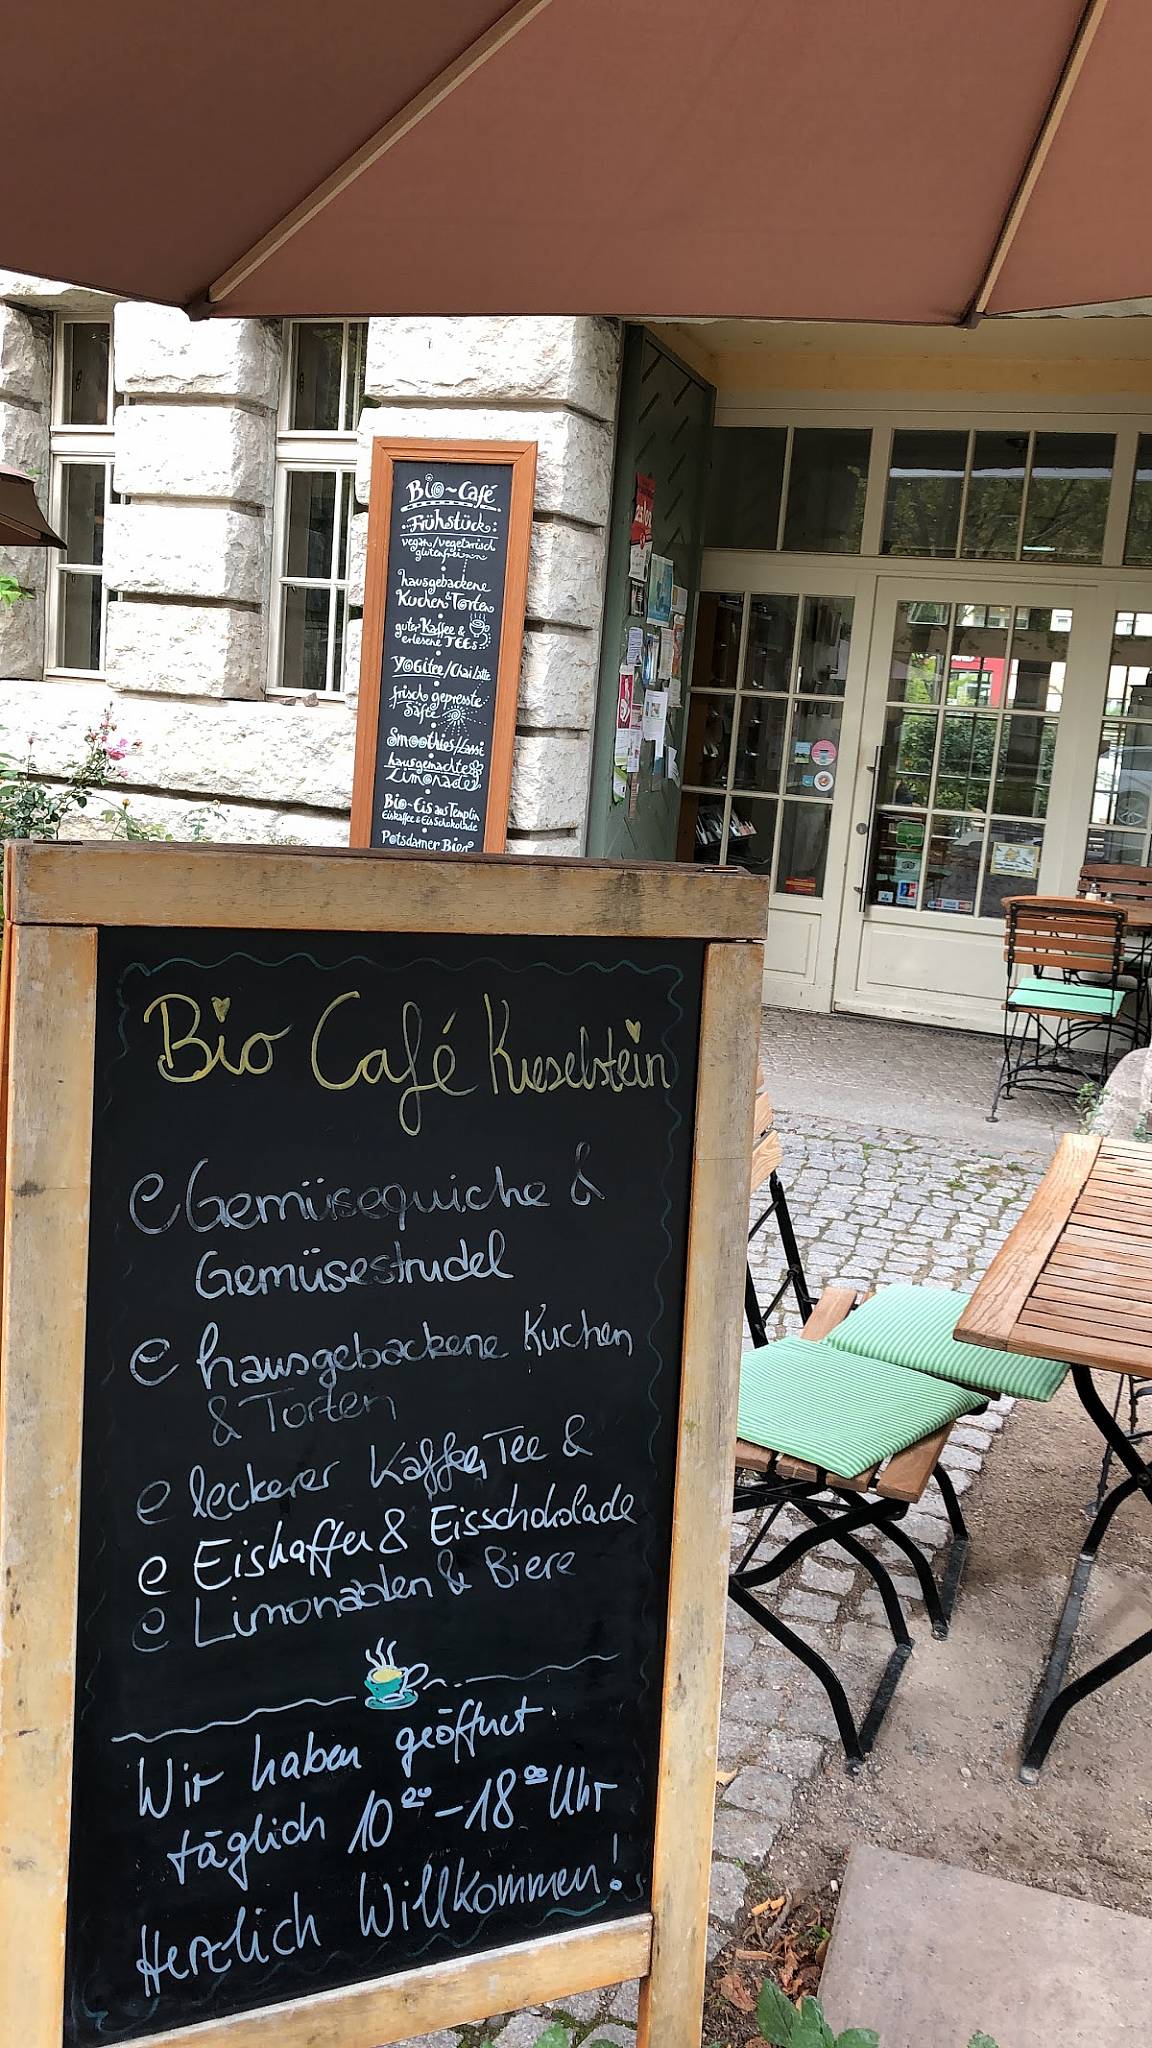 Bio~Café
Frühstück
vegan/vegetarisch
glutenfrei
hausgebackene
Kuchen & Torten
guter Kaffee &
erlesene TEEs
YOGitee/Chai Latte
frisch gepresste
Säfte
Smoothies/Lassi
hausgemachte
Limonaden
Bio-Eis aus Templin
Eiskaffee & Eisschokolade
Potsdamer Bier
Bio Café Kieselstein
Gemüsequiche &
Gemüsestrudel
hausgebackene Kuchen
& Torten
leckerer Kaffee, Tee &
Eiskaffee & Eisschokolade
Limonaden & Biere
Wir haben geöffnet
täglich 10⁰⁰-18⁰⁰ Uhr
Herzlich Willkommen!